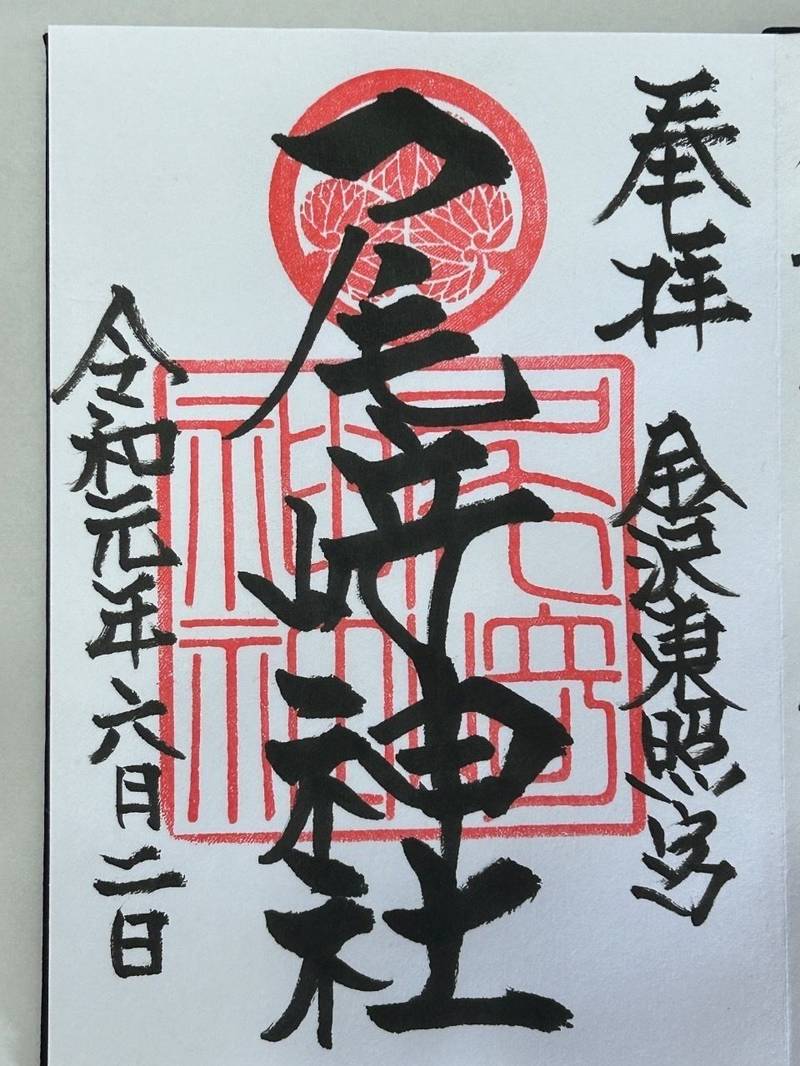 奉拝
金沢東照宮
尾﨑神社
令和元年六月二日
尾崎神社